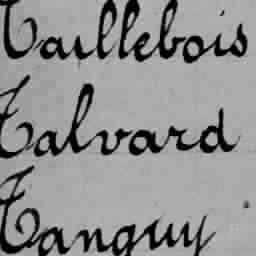 Taillebois
Talvard
Tanguy